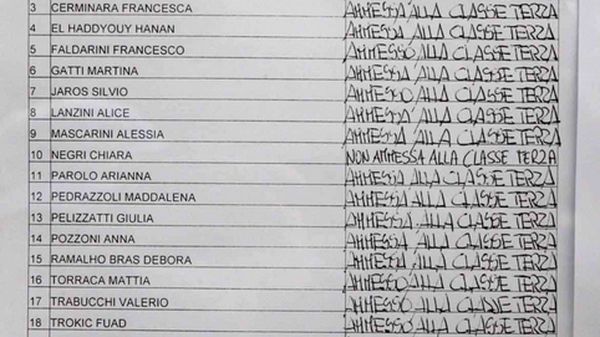 3 CERMINARA FRANCESCA AMMESSA ALLA CLASSE TERZA
4 EL HADDYOUY HANAN AMMESSA ALLA CLASSE TERZA
5 FALDARINI FRANCESCO AMMESSO ALLA CLASSE TERZA
6 GATTI MARTINA AMMESSA ALLA CLASSE TERZA
7 JAROS SILVIO AMMESSO ALLA CLASSE TERZA
8 LANZINI ALICE AMMESSA ALLA CLASSE TERZA
9 MASCARINI ALESSIA AMMESSA ALLA CLASSE TERZA
10 NEGRI CHIARA NON AMMESSA ALLA CLASSE TERZA
11 PAROLO ARIANNA AMMESSA ALLA CLASSE TERZA
12 PEDRAZZOLI MADDALENA AMMESSA ALLA CLASSE TERZA
13 PELIZZATI GIULIA AMMESSA ALLA CLASSE TERZA
14 POZZONI ANNA AMMESSA ALLA CLASSE TERZA
15 RAMALHO BRAS DEBORA AMMESSA ALLA CLASSE TERZA
16 TORRACA MATTIA AMMESSO ALLA CLASSE TERZA
17 TRABUCCHI VALERIO AMMESSO ALLA CLASSE TERZA
18 TROKIC FUAD AMMESSO ALLA CLASSE TERZA